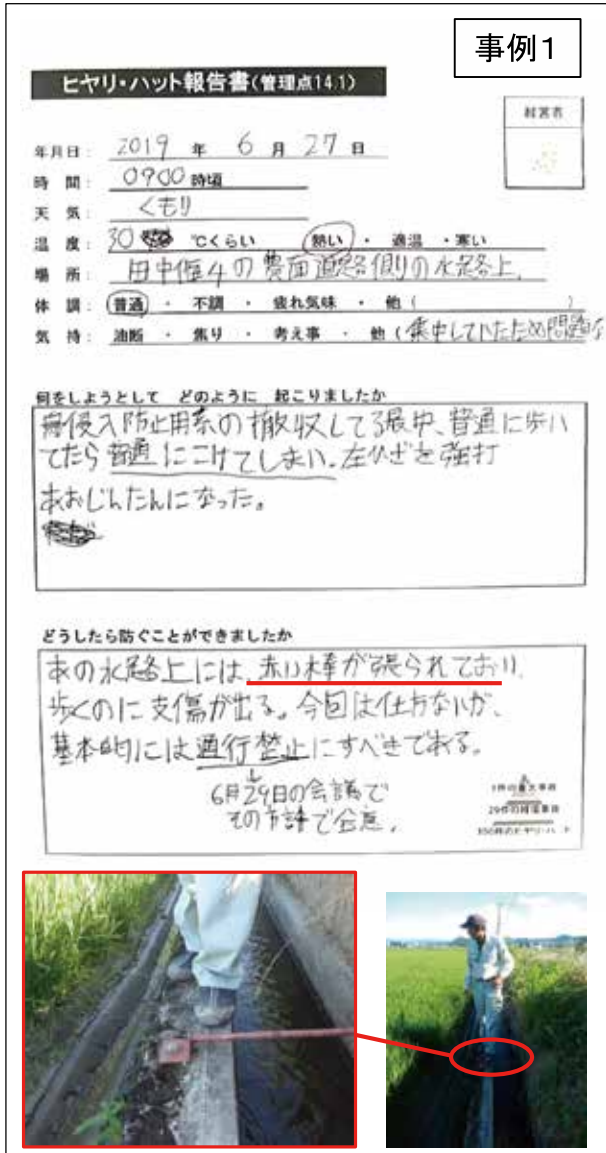 事例1
ヒヤリ・ハット報告書(管理点14.1)
経営者
年月日: 2019 年 6 月 27 日
時 間: 0900 時頃
天 気: くもり
温 度: 30 ℃くらい 熱い ・ 適温 ・ 寒い
場 所: 田中 4の農面道路側の水路上.
体 調: 普通 ・ 不調 ・ 疲れ気味 ・ 他( )
気 持: 油断 ・ 焦り ・ 考え事 ・ 他(集中していたため問題な
何をしようとして どのように 起こりましたか
侵入防止用糸の撤収してる最中、普通に歩い
てたら普通にこけてしまい、左ひざを強打
あおじんたんになった。
どうしたら防ぐことができましたか
あの水路上には、赤い棒が張られており、
歩くのに支傷が出る。今回は仕方ないが、
基本的には通行禁止にすべきである。
6月29日の会議で
その方針で合意.
1件の重大事故
29件の軽傷事故
300件のヒヤリ・ハット